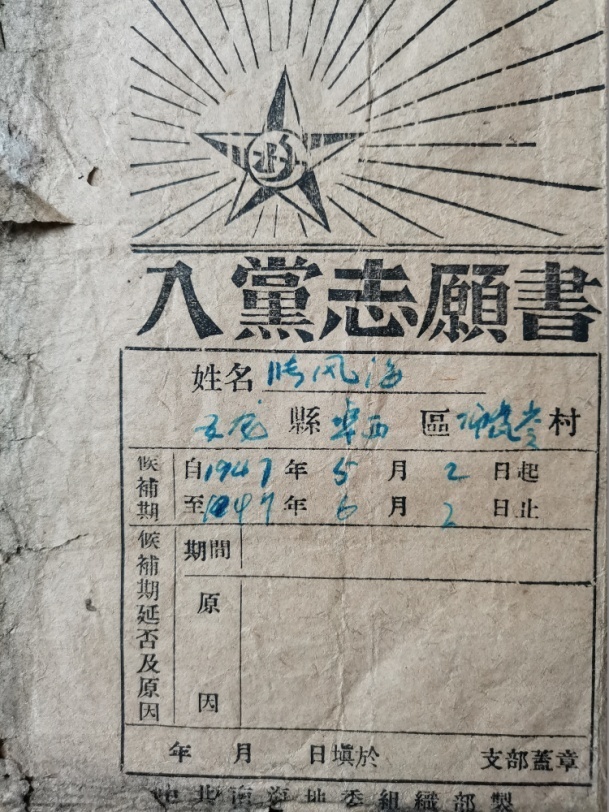 入黨志願書
姓名 风海
縣 區 村
候補期
自1947年5月2日起
至1947年6月2日止
候補期延否及原因
期間
原因
年 月 日填於 支部蓋章
委組織部製